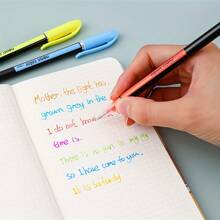 Mother, the light has
grown grey in the
I do not know
time is.
There is no fun in my
so I have come to you.
It is Saturday